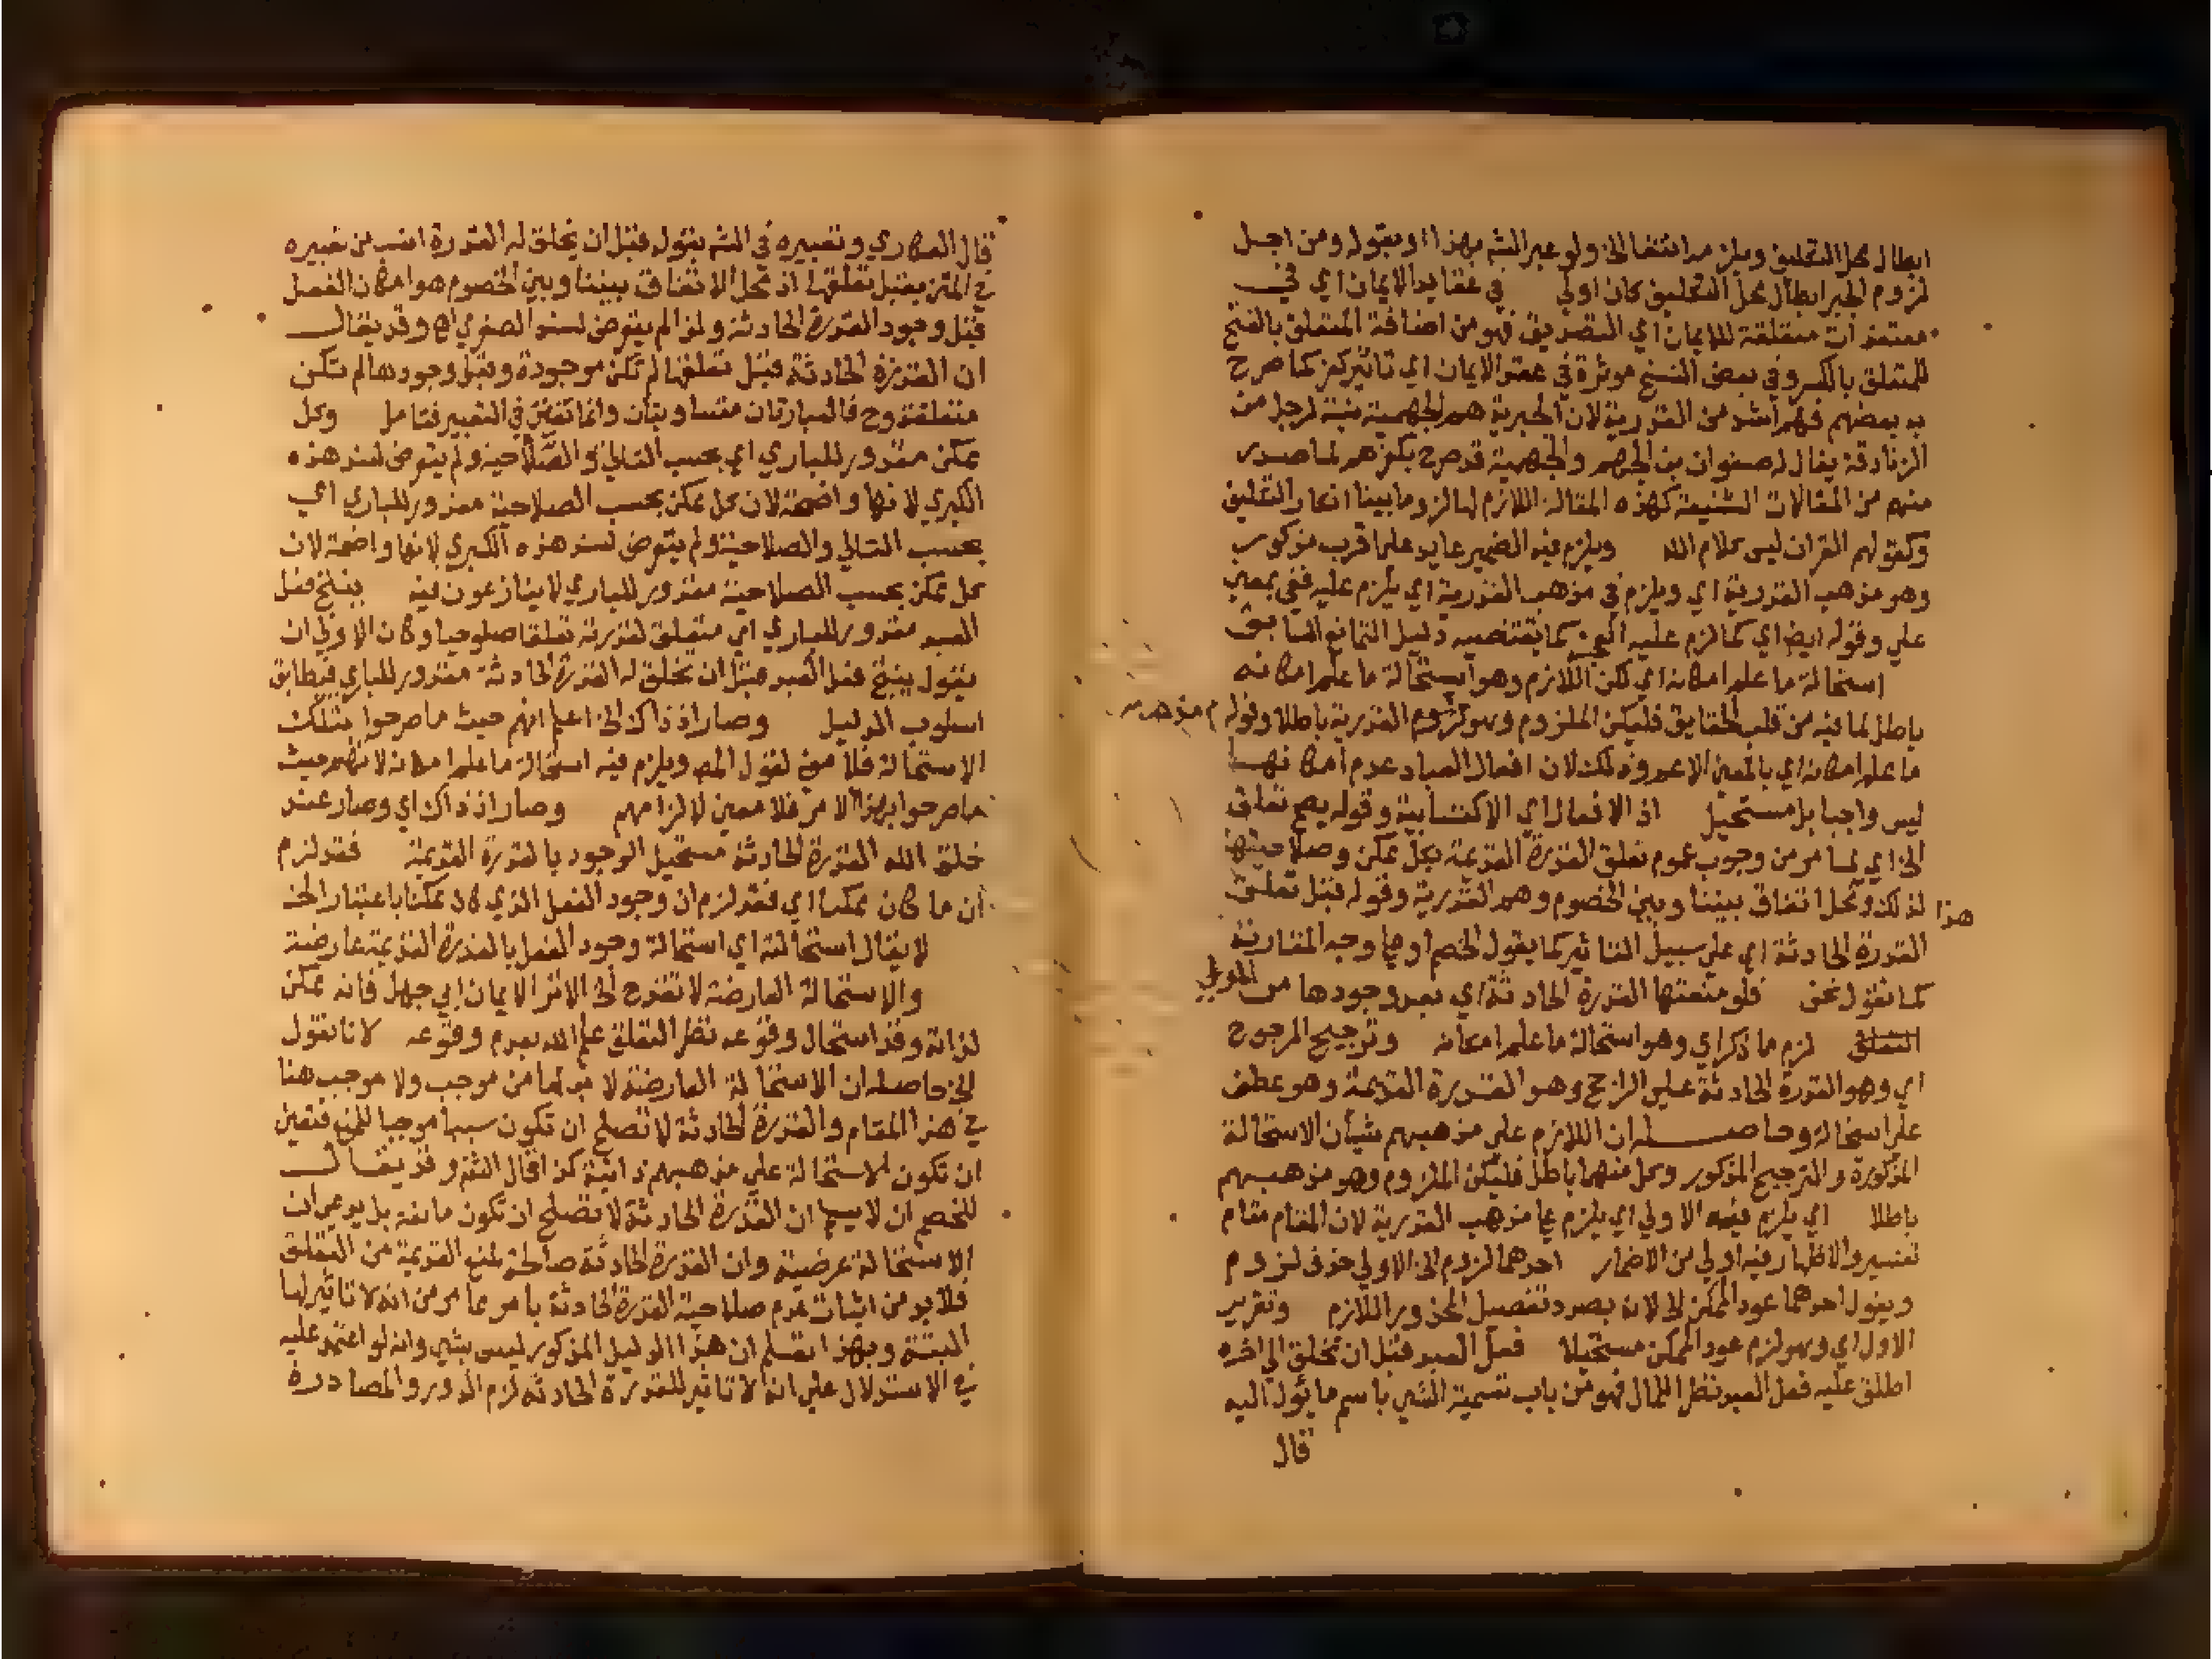 ابطال محل التكليف ويلزمه انتفا الخ ولو عبر المتن بهذا او بقوله ومن اجل
لزوم الجبر ابطال محل التكليف كان اولي في عقايد الايمان اي في
معتقدات متعلقة للايمان اي التصديق فهو من اضافة المتعلق بالفتح
للمتعلق بالكسر وفي بعض النسخ موثرة في عقد الايمان اي تاثير كفر كما صرح
به بعضهم فهم اشد من القدرية لان الجبرية هم الجهمية نسبة لرجل من
الزنادقة يقال له صفوان بن الجهم والجهمية قد صرح بكفرهم لما صدر
منهم من المقالات الشنيعة كهذه المقالة اللازم لها لزوما بينا انكار التكليف
وكقولهم القران ليس كلام الله ويلزم فيه الضمير عايد علي اقرب مذكور
وهو مذهب القدرية اي ويلزم في مذهب القدرية اي يلزم عليه ففي بمعني
علي وقوله ايضا اي كما لزم عليه العجز كما يقتضيه دليل التمانع السابق
استحالة ما علم امكانه اي لكن اللازم وهو استحالة ما علم امكانه
باطل لما فيه من قلب الحقايق فليكن الملزوم وهو مذهب القدرية باطلا وقوله
ما علم امكانه اي بالمعني الاعم وذلك لان افعال العباد عدم امكانها
ليس واجبا بل مستحيل اذ الافعال اي الاكتسابية وقوله يصح تعلق
الخ اي لما مر من وجوب عموم تعلق القدرة القديمة بكل ممكن وصلاحيتها
لذلك ومحل اتفاق بيننا وبين الخصوم وهم القدرية وقوله قبل تعلق هذا
القدرة الحادثة اي علي سبيل التاثير كما يقول الخصم او علي وجه المقارنة
كما نقول نحن فلو منعتها القدرة الحادثة اي بعد وجودها من
التعلق لزم ما ذكر اي وهو استحالة ما علم امكانه وترجيح المرجوح
اي وهو القدرة الحادثة علي الراجح وهو القدرة القديمة وهو عطف
علي استحالة وحاصله ان اللازم علي مذهبهم شيان الاستحالة
المذكورة والترجيح المذكور وكل منهما باطل فليكن الملزوم وهو مذهبهم
باطلا اي يلزم فيه الاولي اي يلزم علي مذهب القدرية لان المقام مقام
تفسير والاظهار فيه اولي من الاضمار احدهما لزوم الخ الاولي حذف لزوم
ويقول احدهما عود الممكن الخ لانه بصدد تفصيل المحذور اللازم وتقرير
الاول اي وهو لزوم عود الممكن مستحيلا فعل العبد قبل ان تخلق الي اخره
اطلق عليه فعل العبد نظرا للمال فهو من باب تسمية الشي باسم ما يؤل اليه
قال
قال العكاري وتعبيره في الشرح بقوله قبل ان يخلق له القدرة انسب من تعبيره
في المتن بقبل تعلقها اذ محل الاتفاق بيننا وبين الخصوم هو امكان الفعل
قبل وجود القدرة الحادثة ولذا لم يتعرض لسند الصغري اه وقد يقال
ان القدرة الحادثة قبل تعلقها لم تكن موجودة وقبل وجودها لم تكن
متعلقة وح فالعبارتان متساويتان وانما تفنن في التعبير فتامل وكل
ممكن مقدور للباري اي بحسب التالي والصلاحية ولم يتعرض لسند هذه
الكبري لانها واضحة لان كل ممكن بحسب الصلاحية مقدور للباري اي
بحسب التالي والصلاحية ولم يتعرض لسند هذه الكبري لانها واضحة لان
كل ممكن بحسب الصلاحية مقدور للباري لا ينازعون فيه ينتج فعل
العبد مقدور للباري اي متعلق لقدرته تعلقا صلوحيا وكان الاولي ان
يقول ينتج فعل العبد قبل ان تخلق له القدرة الحادثة مقدور للباري فيطابق
اسلوب الدليل وصار اذ ذاك الخ اعلم انهم حيث ما صرحوا بتلك
الاستحالة فلا معني لقول المص ويلزم فيه استحالة ما علم امكانه لانهم حيث
ما صرحوا بهذا الامر فلا معني لالزامهم وصار اذ ذاك اي وصار عند
خلق الله القدرة الحادثة مستحيل الوجود بالقدرة القديمة فقد لزم
ان ما كان ممكنا اي فقد لزم ان وجود الفعل الذي كان ممكنا باعتبار الخ
لا يقال استحالته اي استحالة وجود الفعل بالقدرة القديمة عارضة
والاستحالة العارضة لا تقدح الخ الاتر الايمان ابي جهل فانه ممكن
لذاته وقد استحال وقوعه نظر التعلق علم الله بعدم وقوعه لانا نقول
الخ حاصله ان الاستحالة العارضة لا بد لها من موجب ولا موجب هنا
في هذا المقام والقدرة الحادثة لا تصلح ان تكون سببا موجبا للمنع فتعين
ان تكون الاستحالة علي مذهبهم ذاتية كذا قال الشرح وقد يقال
للخصم ان لا يسلم ان القدرة الحادثة لا تصلح ان تكون مانعة بل يدعي ان
الاستحالة عرضية وان القدرة الحادثة صالحة لمنع القديمة من التعلق
فلا بد من اثبات عدم صلاحية القدرة الحادثة بامر غير ما مر من انه لا تاثير لها
البتة وبهذا تعلم ان هذا الدليل المذكور ليس بشي وانه لو اعتمد عليه
في الاستدلال علي انه لا تاثير للقدرة الحادثة لزم الدور والمصادرة